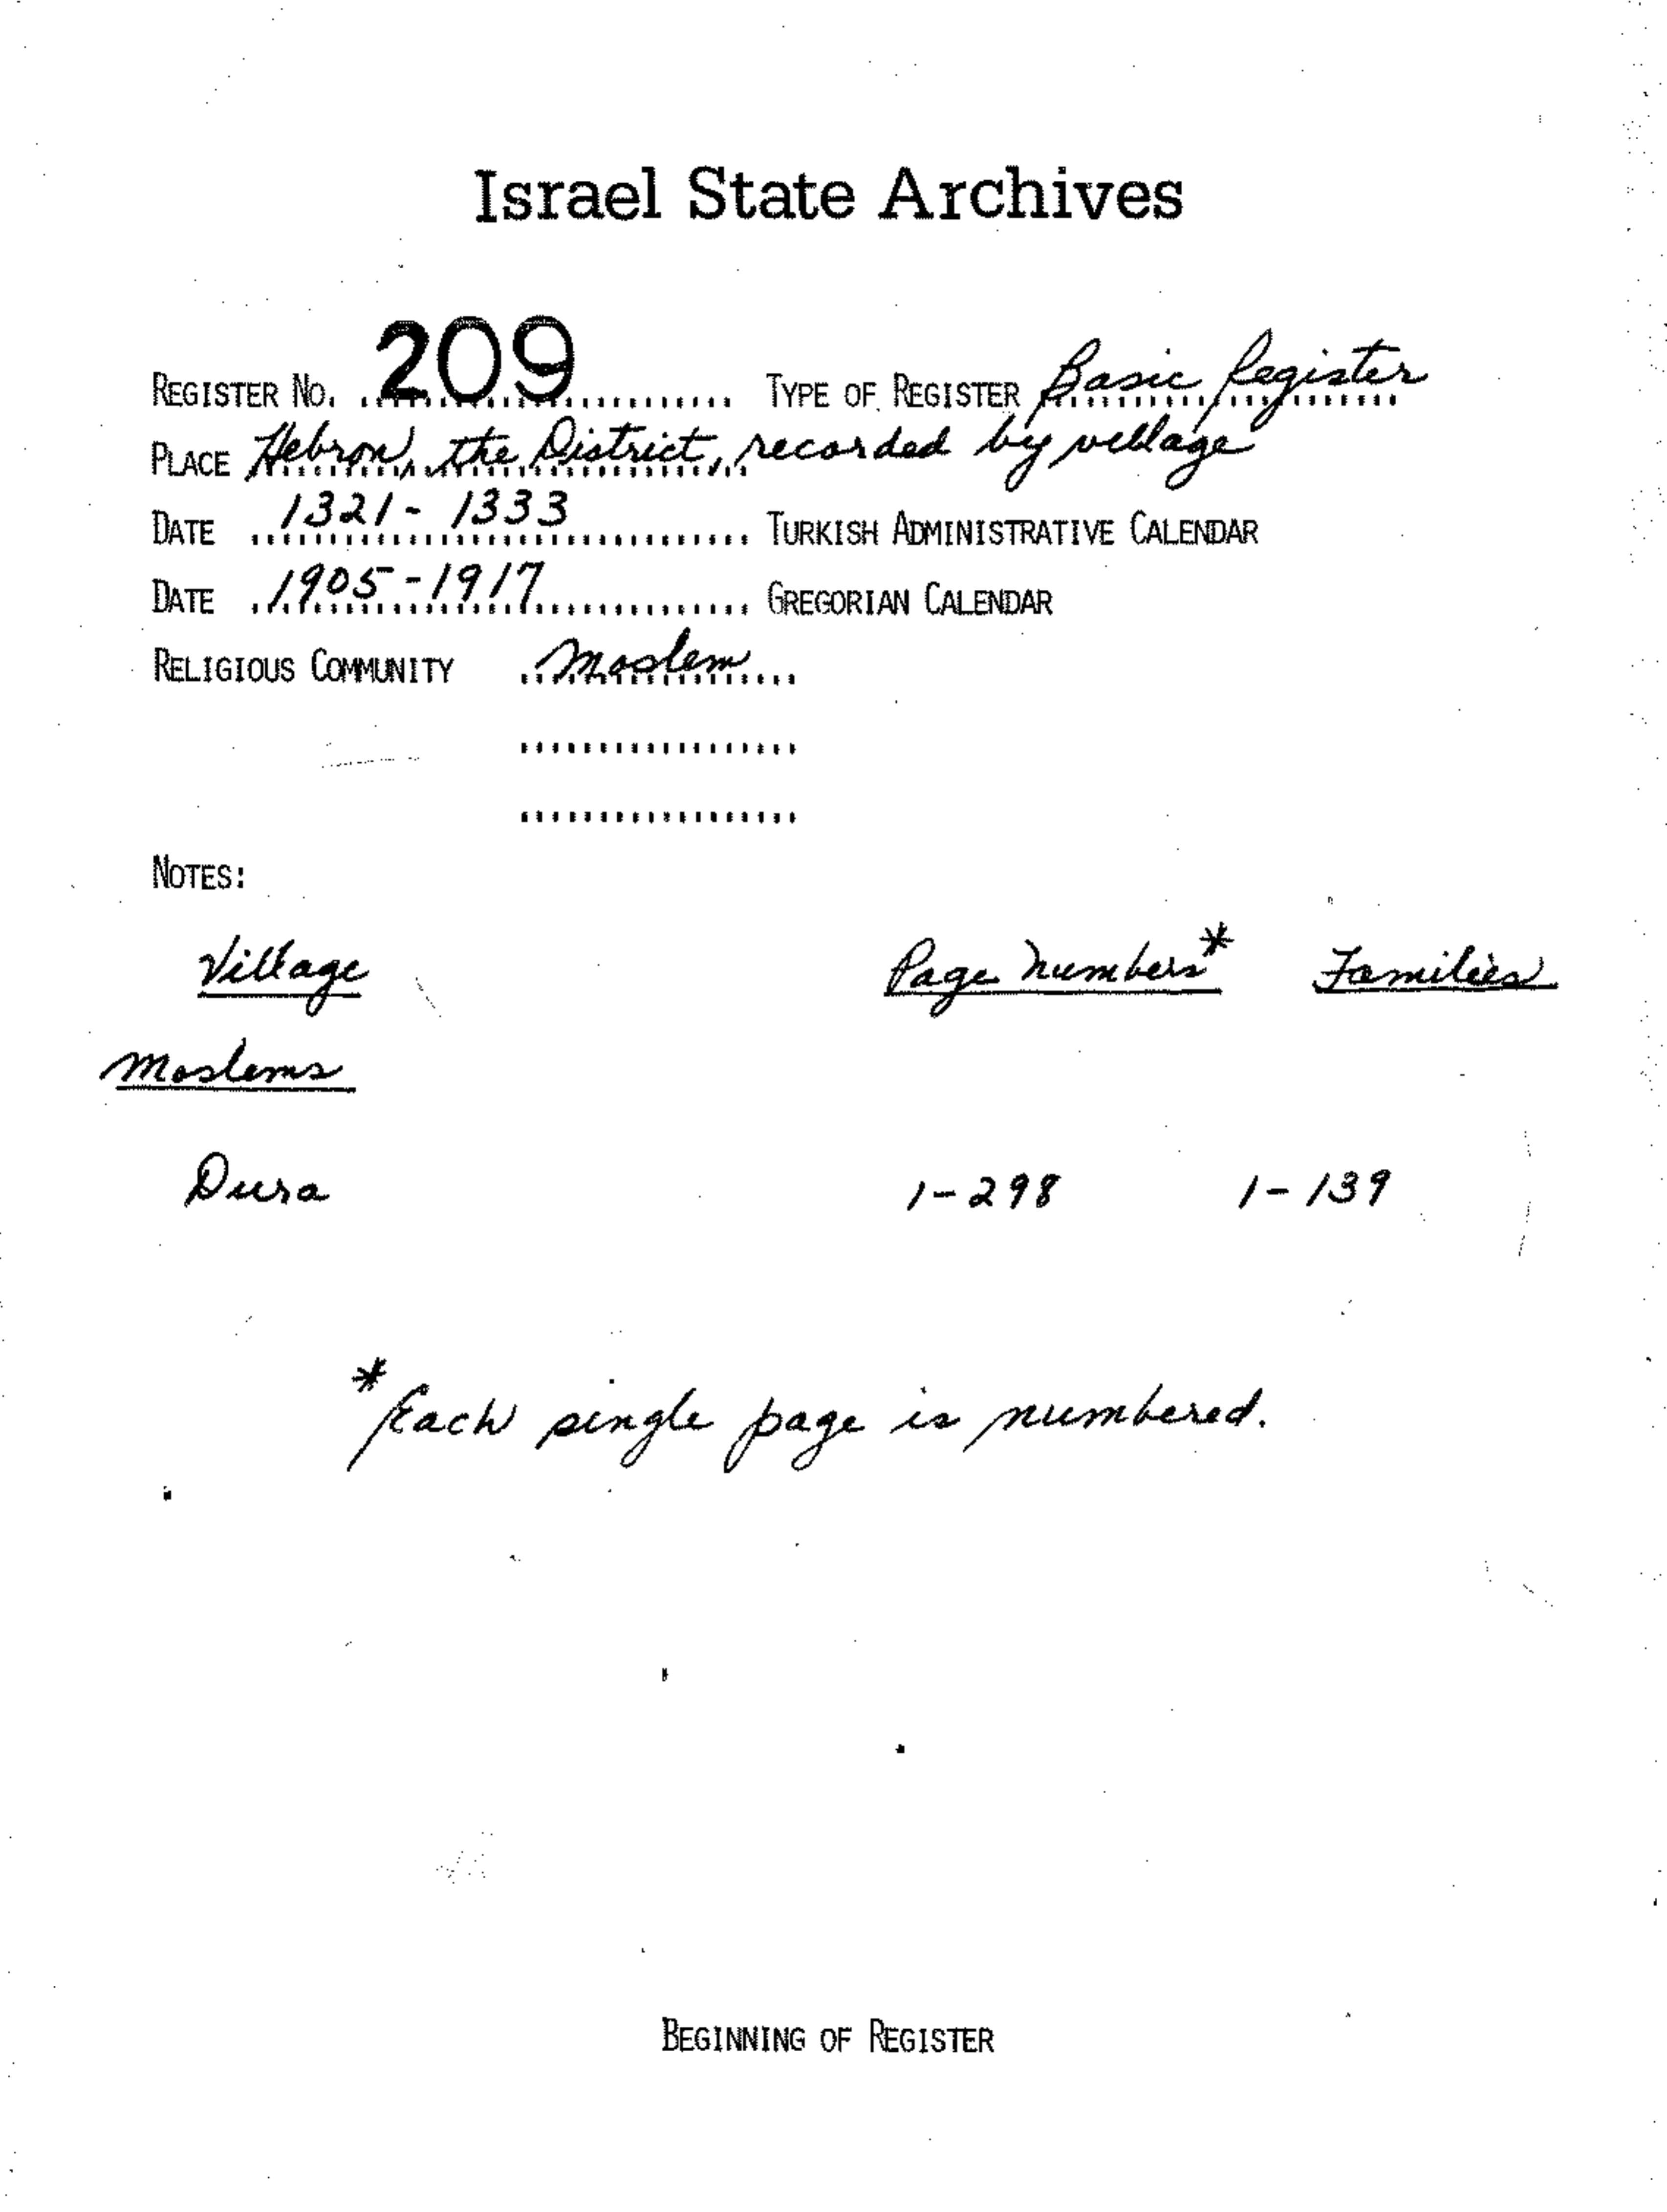 Israel State Archives
REGISTER NO. 209 TYPE OF REGISTER Basic Register
PLACE Hebron, the District, recorded by village
DATE 1321-1333 TURKISH ADMINISTRATIVE CALENDAR
DATE 1905-1917 GREGORIAN CALENDAR
RELIGIOUS COMMUNITY Moslem
NOTES:
Village Page Numbers* Families
Moslems
Dura 1-298 1-139
*Each single page is numbered.
BEGINNING OF REGISTER